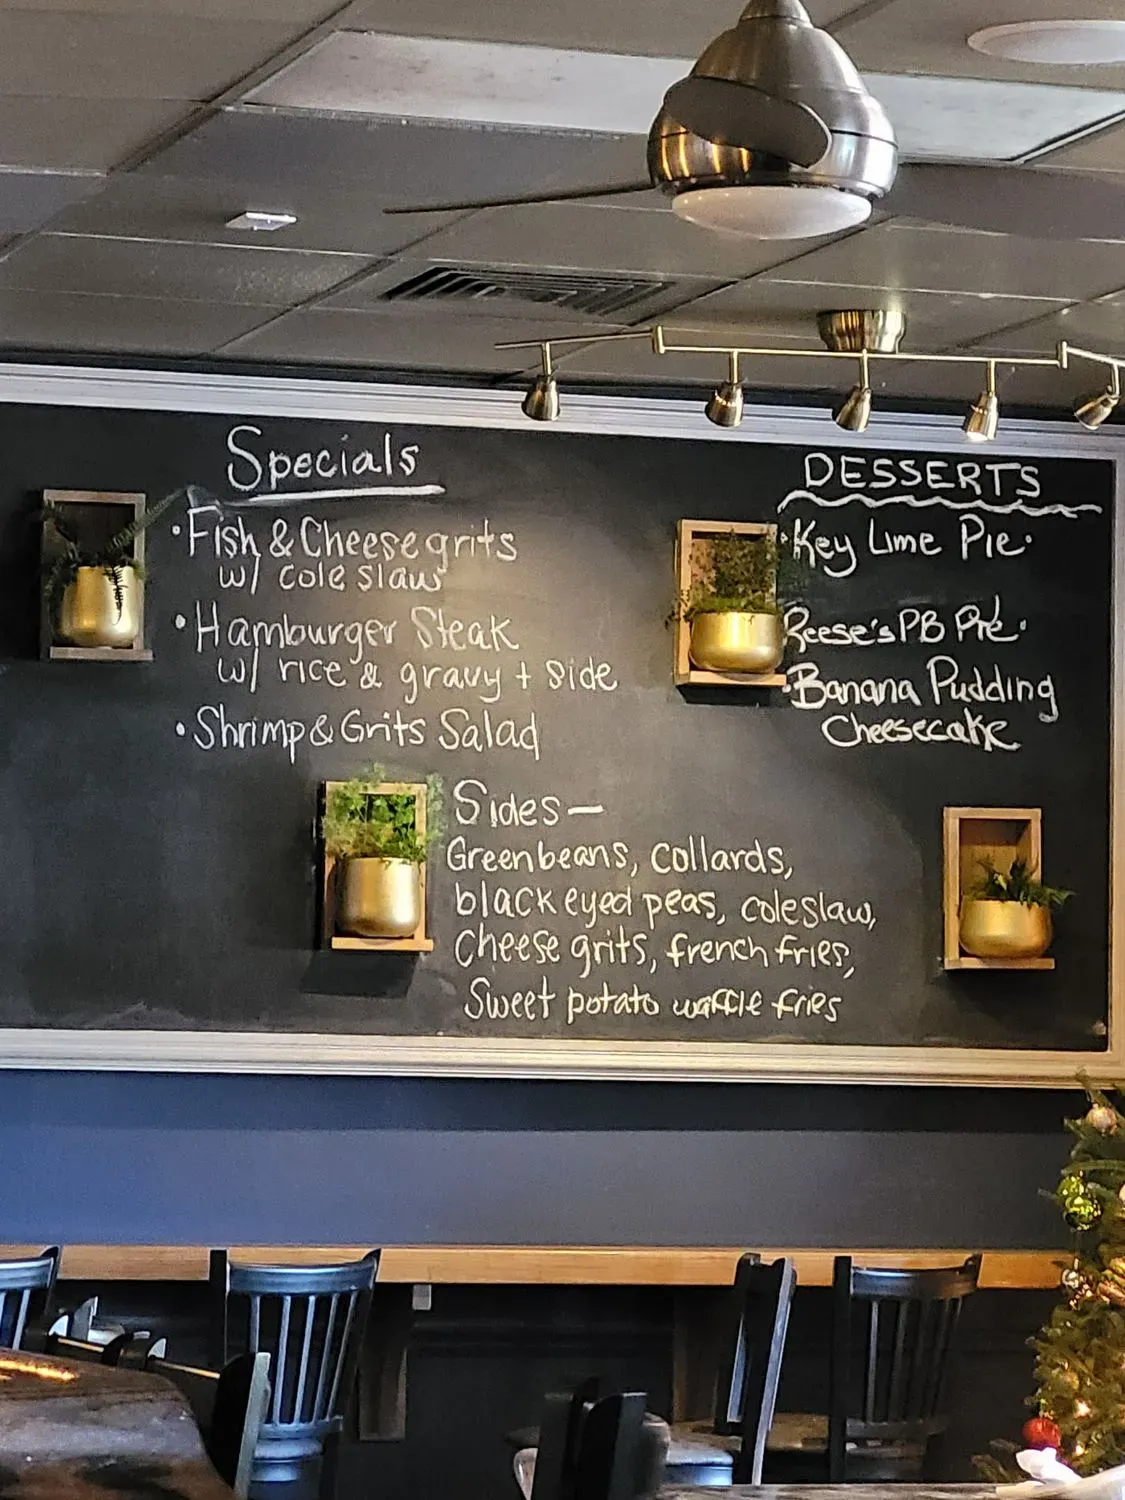 Specials
•Fish & Cheese grits
w/ cole slaw
•Hamburger Steak
w/ rice & gravy + side
•Shrimp & Grits Salad
Sides—
Green beans, collards,
black eyed peas, coleslaw,
cheese grits, french fries,
Sweet potato waffle fries
DESSERTS
•Key Lime Pie•
Reese's PB Pie•
•Banana Pudding
Cheesecake